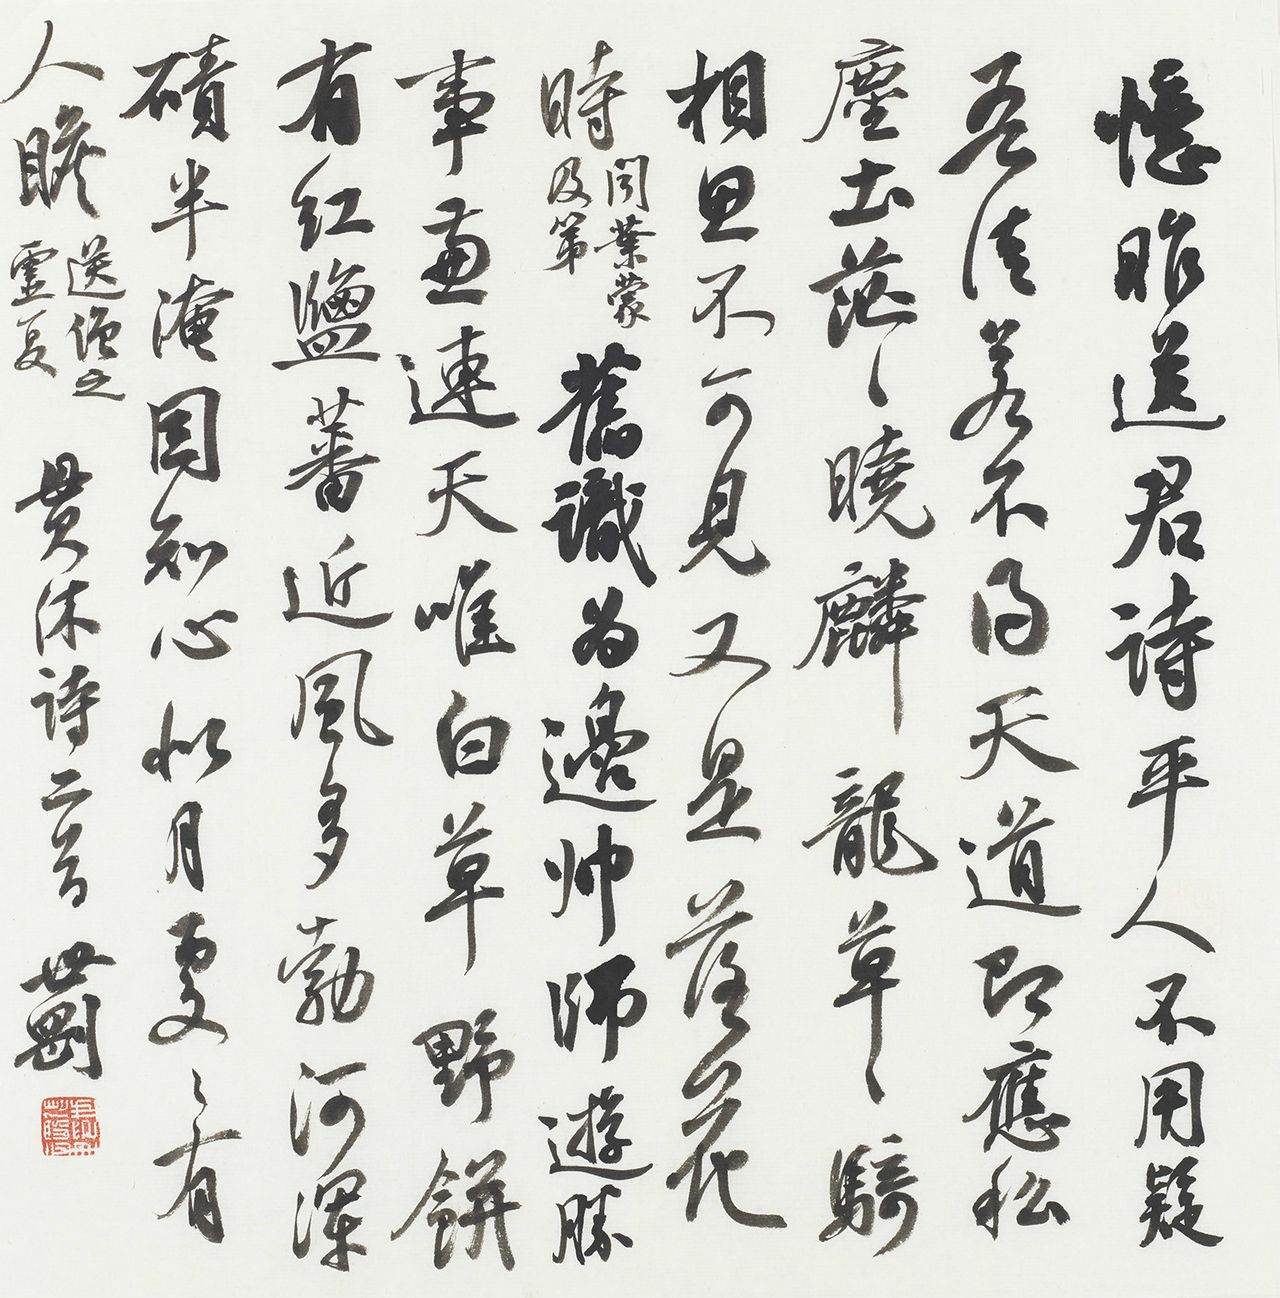 憶昨送君詩平人不用疑
吾徒若不得天道即應私
塵土茫々曉麟龍草々騎
相思不可見又是落花
時 聞葉蒙及第 舊識為邊帥師遊勝
事兼連天唯白草野餅
有紅鹽蕃近風多勃河渾
磧半淹因知心似月處々有
人瞻 送僧之靈夏 貫休詩二首 世剛